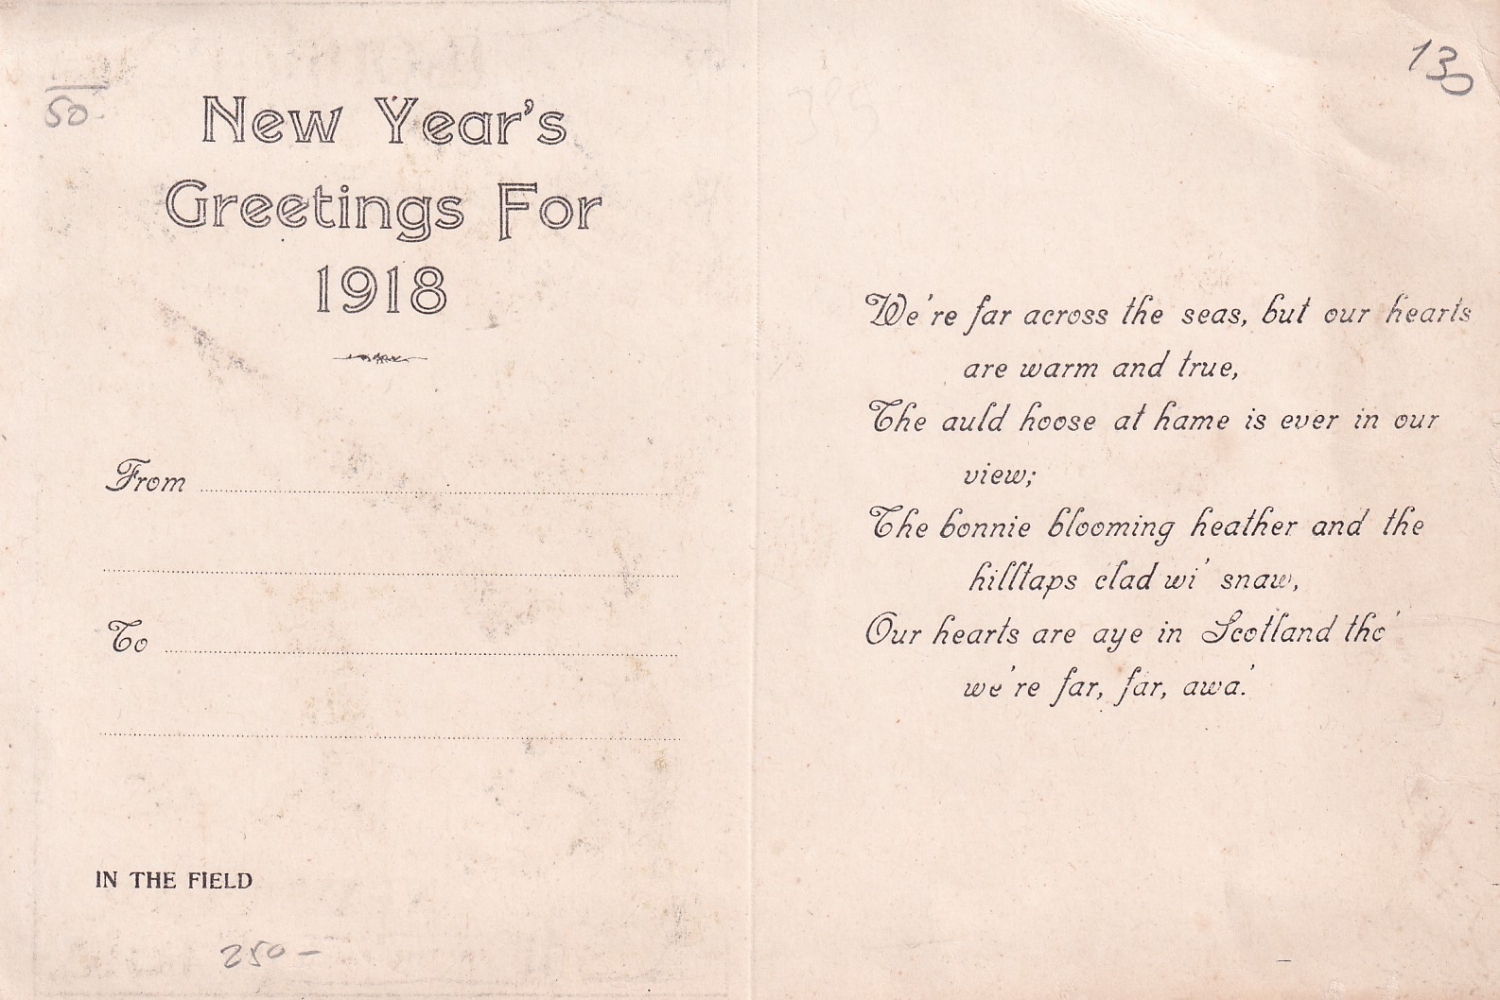 50-
New Year's
Greetings For
1918
From
To
IN THE FIELD
250-
130
We're far across the seas, but our hearts
are warm and true,
The auld hoose at hame is ever in our
view;
The bonnie blooming heather and the
hilltaps clad wi' snaw,
Our hearts are aye in Scotland tho'
we're far, far, awa.'